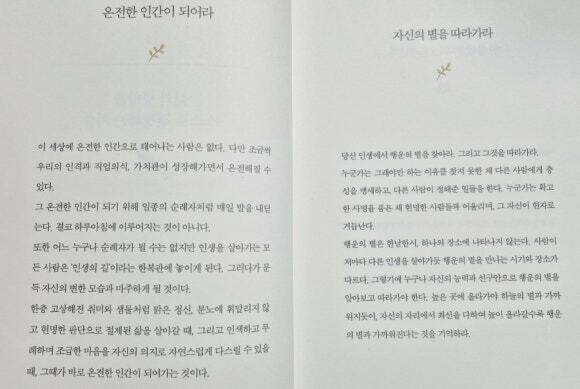 온전한 인간이 되어라
이 세상에 온전한 인간으로 태어나는 사람은 없다. 다만 조금씩
우리의 인격과 직업의식, 가치관이 성장해가면서 온전해질 수
있다.
그 온전한 인간이 되기 위해 일종의 순례자처럼 매일 발을 내딛
는다. 결코 하루아침에 이루어지는 것이 아니다.
또한 어느 누구나 순례자가 될 수는 없지만 인생을 살아가는 모
든 사람은 '인생의 길'이라는 한복판에 놓이게 된다. 그러다가 문
득 자신의 변한 모습과 마주하게 될 것이다.
한층 고상해진 취미와 샘물처럼 밝은 정신, 분노에 휘말리지 않
고 현명한 판단으로 절제된 삶을 살아갈 때, 그리고 인색하고 무
례하며 조급한 마음을 자신의 의지로 자연스럽게 다스릴 수 있을
때, 그때가 바로 온전한 인간이 되어가는 것이다.
자신의 별을 따라가라
당신 인생에서 행운의 별을 찾아라. 그리고 그것을 따라가라.
누군가는 그래야만 하는 이유를 찾지 못한 채 다른 사람에게 충
성을 맹세하고, 다른 사람이 정해준 일들을 한다. 누군가는 확고
한 사명을 품은 채 현명한 사람들과 어울리며, 그 자신이 현자로
거듭난다.
행운의 별은 한날한시, 하나의 장소에 나타나지 않는다. 사람이
저마다 다른 인생을 살아가듯 행운의 별을 만나는 시기와 장소가
다르다. 그렇기에 누구나 자신의 능력과 선구안으로 행운의 별을
알아보고 따라가야 한다. 높은 곳에 올라가야 하늘의 별과 가까
워지듯이, 자신의 자리에서 최선을 다하여 높이 올라갈수록 행운
의 별과 가까워진다는 것을 기억하라.